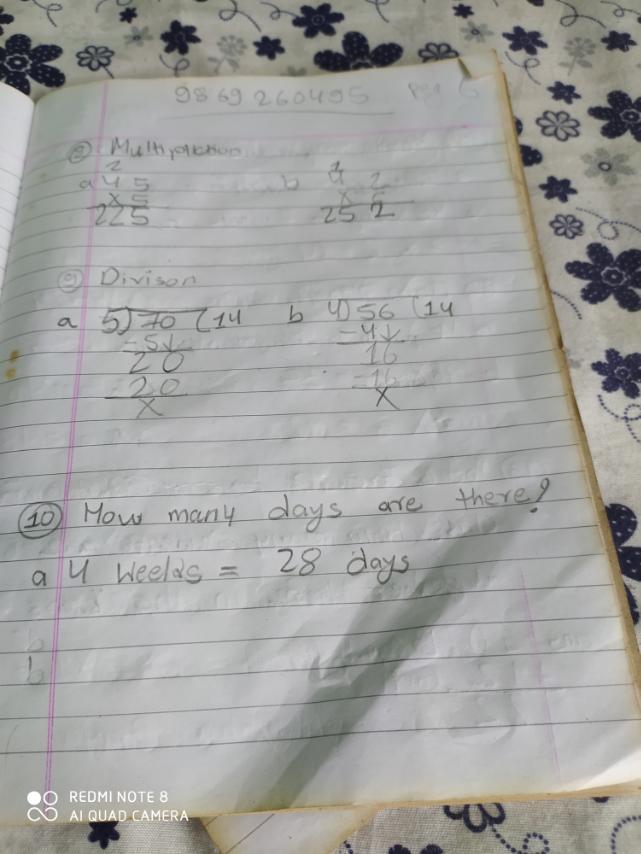 9869260495 pg 6
8 Multiplication
2 1
a 45 b 42
x5 x 6
225 252
9 Divison
a 5)70(14 b 4)56(14
-5↓ -4↓
20 16
-20 -16
x x
10 How many days are there?
a 4 weeks = 28 days
b
b
REDMI NOTE 8
AI QUAD CAMERA